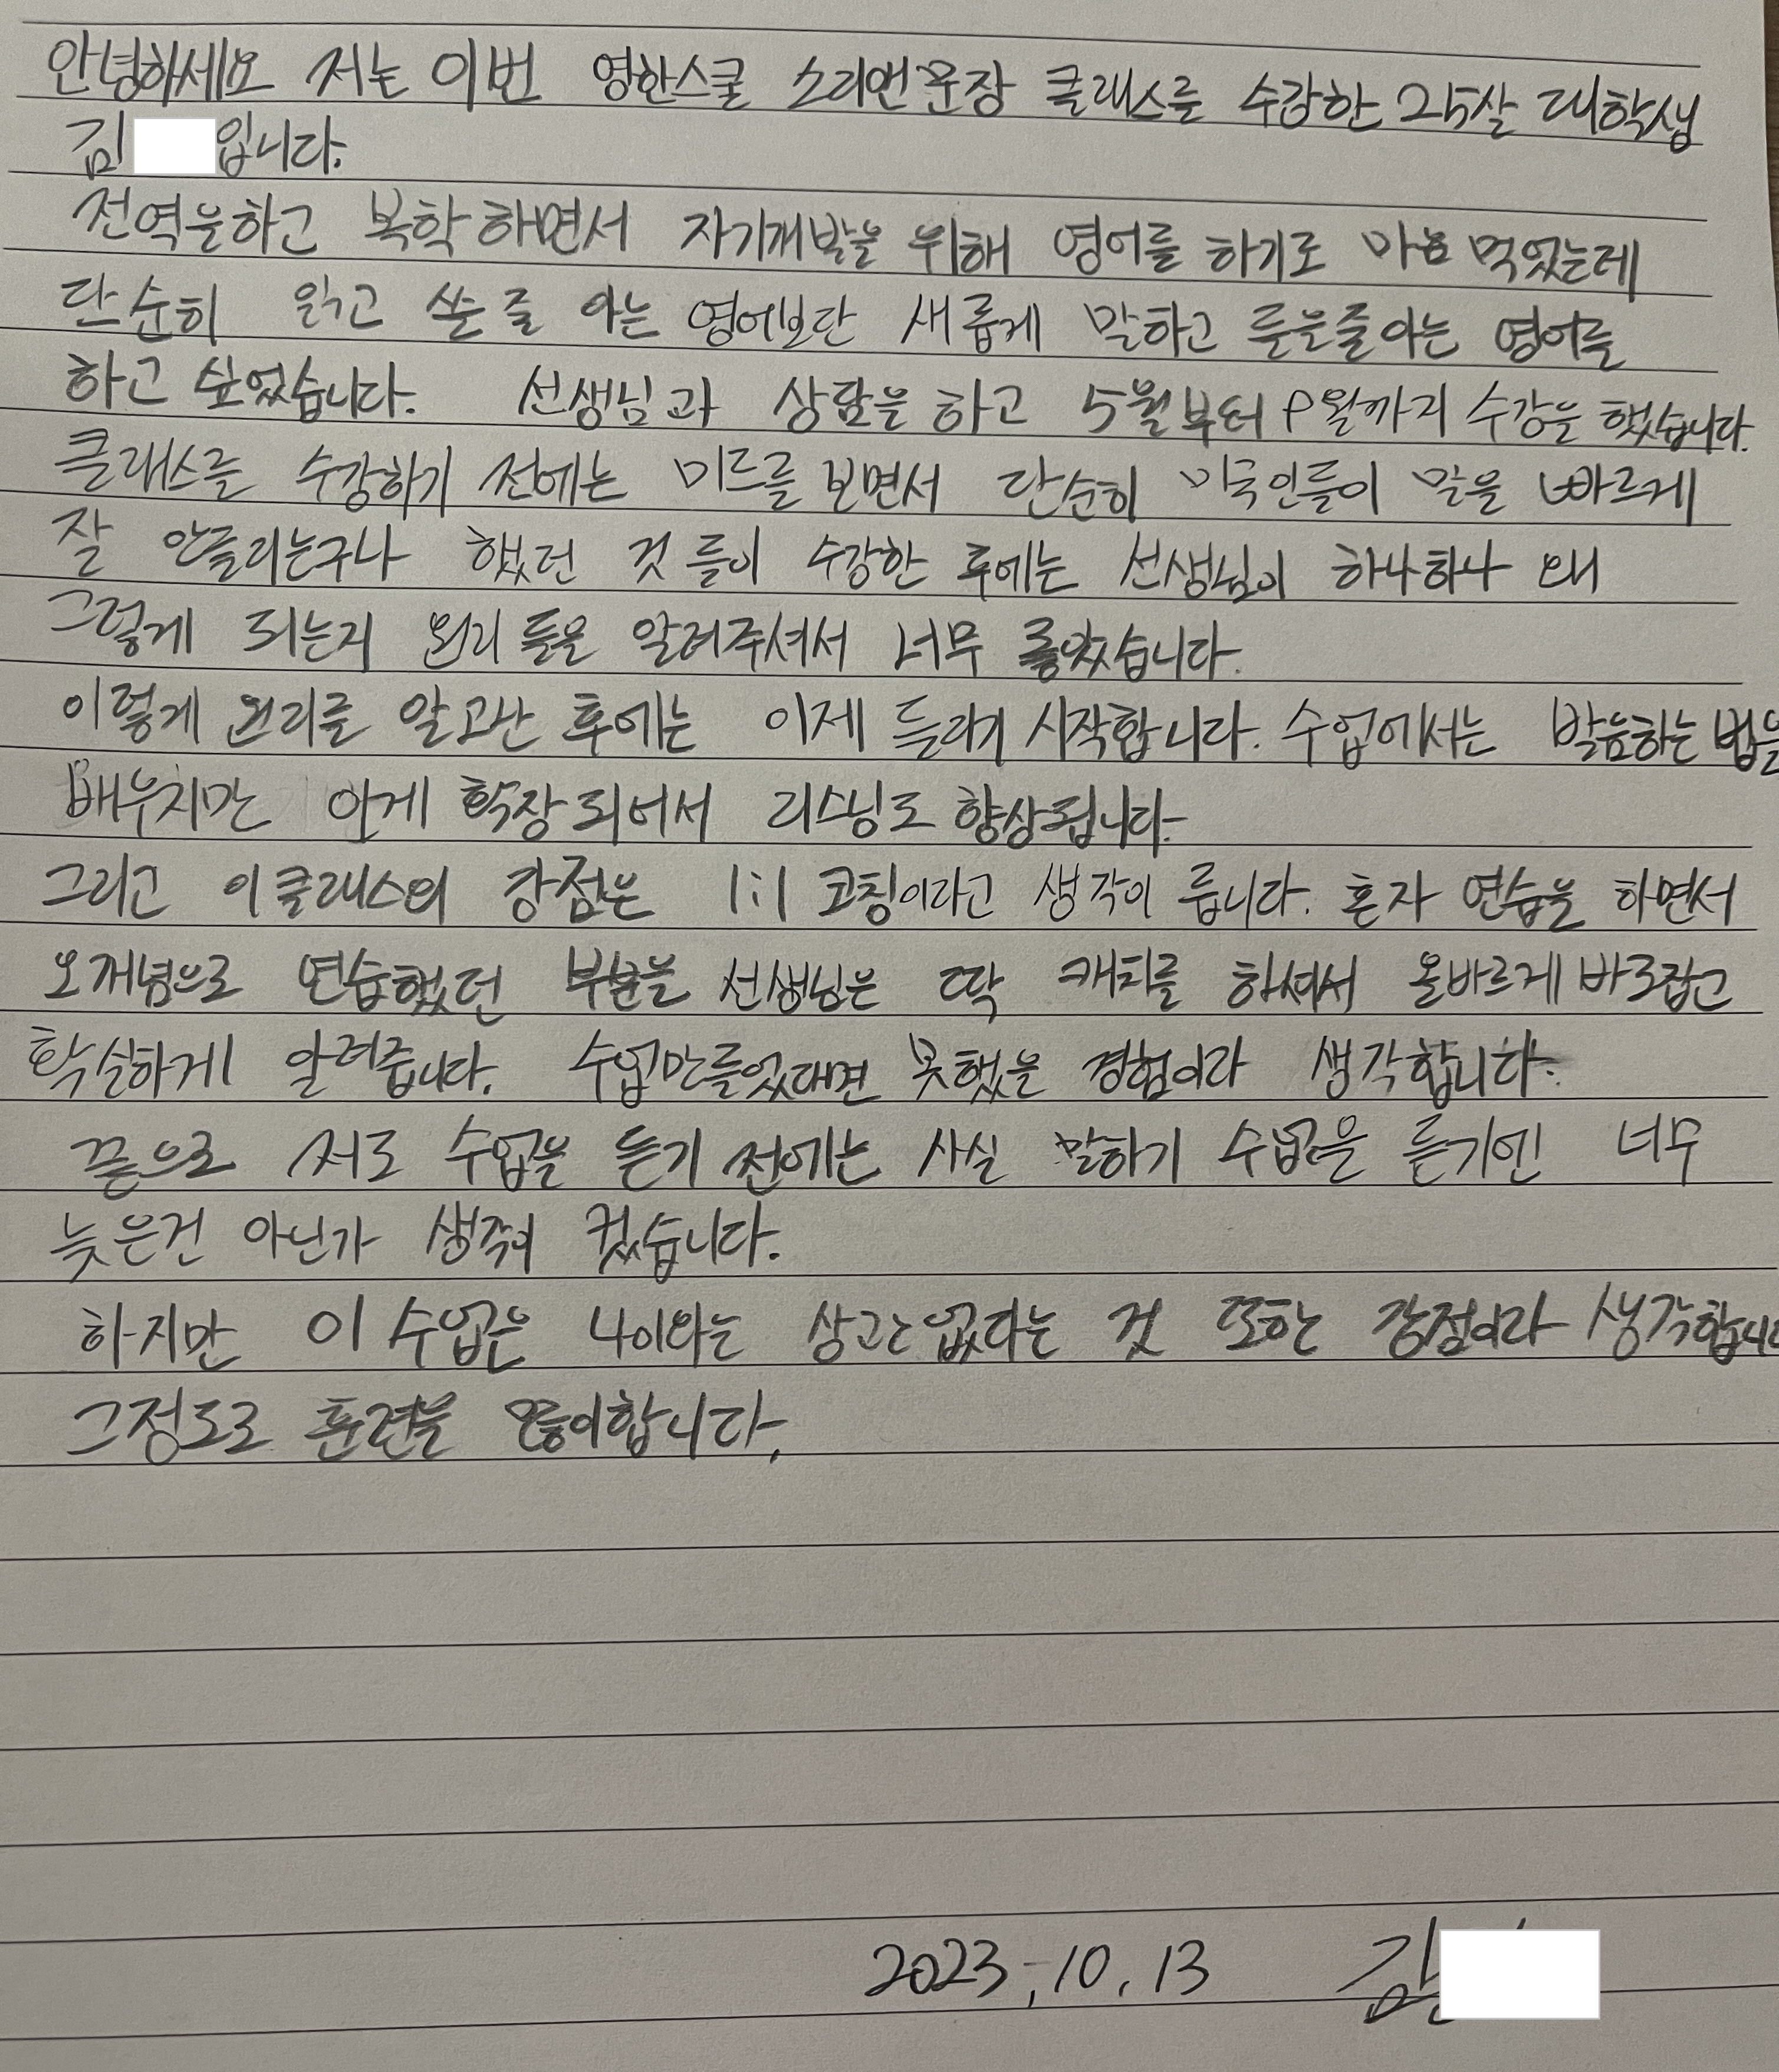 안녕하세요 저는 이번 영한스쿨 소리앤문장 클래스를 수강한 25살 대학생
김 입니다.
전역을하고 복학하면서 자기개발을 위해 영어를 하기로 마음 먹었는데
단순히 읽고 쓴줄 아는 영어보단 새롭게 말하고 들을줄아는 영어를
하고 싶었습니다. 선생님과 상담을 하고 5월부터 9월까지 수강을 했습니다.
클래스를 수강하기 전에는 미드를 보면서 단순히 미국인들이 말을 빠르게
잘 안들리는구나 했던 것 들이 수강한 후에는 선생님이 하나하나 왜
그렇게 되는지 원리 들을 알려주셔서 너무 좋았습니다.
이렇게 원리를 알고난 후에는 이제 들리기 시작합니다. 수업에서는 발음하는 법을
배우지만 확장되어서 리스닝도 향상됩니다.
그리고 이클래스의 강점은 1:1 코칭이라고 생각이 듭니다. 혼자 연습을 하면서
오개념으로 연습했던 부분을 선생님은 딱 캐치를 하셔서 올바르게 바로잡고
확실하게 알려줍니다. 수업만들었다면 못했을 경험이라 생각합니다.
끝으로 저도 수업을 듣기 전에는 사실 말하기 수업을 듣기엔 너무
늦은건 아닌가 생각이 컸습니다.
하지만 이 수업은 나이와는 상관없다는 것 또한 강점이라 생각합니다
그정도로 훈련을 많이합니다.
2023.10.13 김